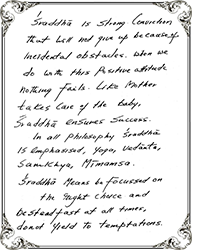 Śraddhā is strong Conviction
that will not give up because of
incidental obstacles. when we
do with this Positive attitude
nothing fails. Like Mother
takes Care of the baby,
Śraddhā ensures Success.
In all Philosophy Śraddhā
is emphasised, Yoga, Vedānta,
Samkhya, Mimamsa.
Śraddhā Means be focussed on
the Right choice and
be steadfast at all times,
donot yield to temptations.